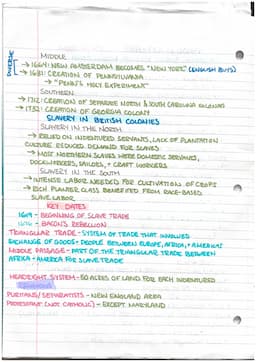 DIVERSE
MIDDLE
→ 1664: NEW AMSTERDAM BECOMES "NEW YORK" (ENGLISH BUYS)
→ 1681: CREATION OF PENNSYLVANIA
→ "PENN'S HOLY EXPERIMENT"
SOUTHERN
→ 1712: CREATION OF SEPARATE NORTH & SOUTH CAROLINA COLONIES
→ 1732: CREATION OF GEORGIA COLONY
SLAVERY IN BRITISH COLONIES
SLAVERY IN THE NORTH
→ RELIED ON INDENTURED SERVANTS, LACK OF PLANTATION
CULTURE REDUCED DEMAND FOR SLAVES
→ MOST NORTHERN SLAVES WERE DOMESTIC SERVANTS,
DOCK-WORKERS, SAILORS, + CRAFT WORKERS
SLAVERY IN THE SOUTH
→ INTENSE LABOR NEEDED FOR CULTIVATION OF CROPS
→ RICH PLANTER CLASS BENEFITED FROM RACE-BASED
SLAVE LABOR
KEY DATES
1619 - BEGINNING OF SLAVE TRADE
1676 - BACON'S REBELLION
TRIANGULAR TRADE - SYSTEM OF TRADE THAT INVOLVED
EXCHANGE OF GOODS + PEOPLE BETWEEN EUROPE, AFRICA, + AMERICAS
MIDDLE PASSAGE - PART OF THE TRIANGULAR TRADE BETWEEN
AFRICA + AMERICA FOR SLAVE TRADE
HEADRIGHT SYSTEM - 50 ACRES OF LAND FOR EACH INDENTURED
PURITANS/SEPARATISTS - NEW ENGLAND AREA
PROTESTANT (NOT CATHOLIC) - EXCEPT MARYLAND